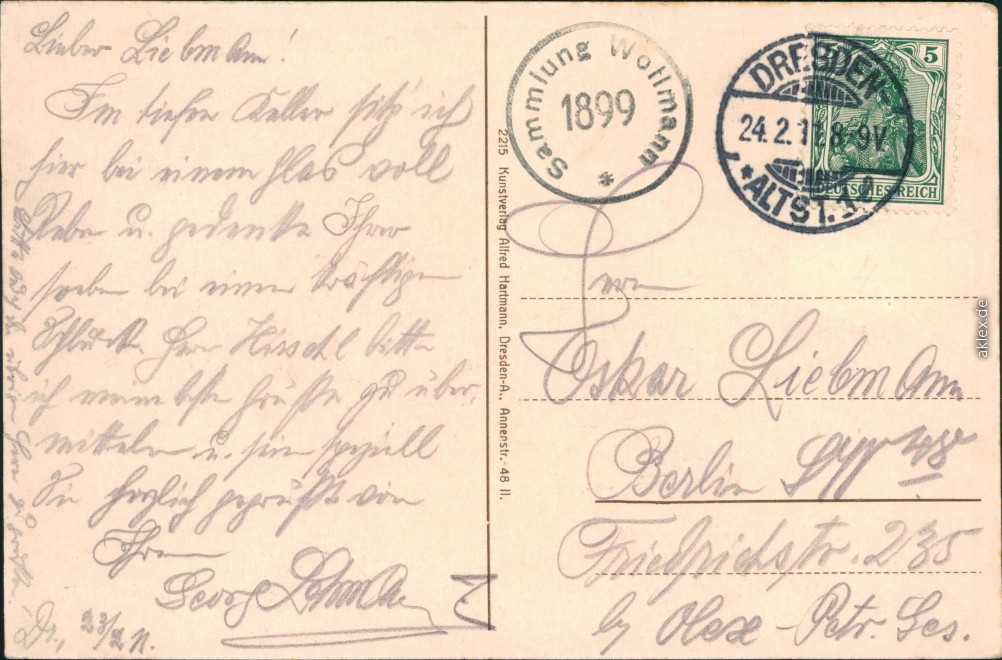 Lieber Liebmann!
Im tiefen Keller sitz' ich
hier bei einem Glas voll
Reben u. gedenke Ihrer
soeben bei einem kräftigen
Schluck. Herrn Hirschl bitte
ich meine beste Grüsse zu über-
mitteln u. sein speziell
Sie herzlich gegrüsst von
Ihrem
Georg
Dr., 23/2 11.
2215 Kunstverlag Alfred Hartmann, Dresden-A., Annenstr. 48 II.
Sammlung Wollmann
1899
*
DRESDEN-
24.2.11.8-9V.
*ALTST.
5
DEUTSCHES REICH
Herrn
Oskar Liebmann
Berlin SW 48
Friedrichstr. 235
by Olex-Petr. Ges.
aklex.de